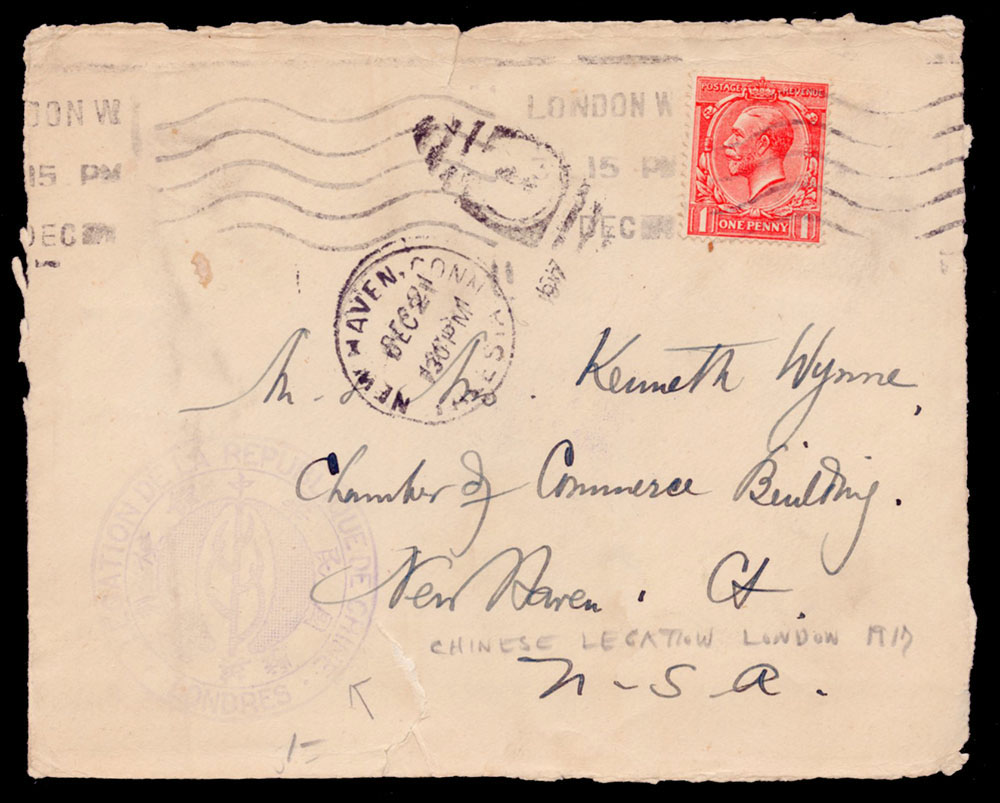 LONDON W
15 PM
DEC
LONDON W
15 PM
DEC
POSTAGE REVENUE
1 ONE PENNY 1
NEW HAVEN, CONN
DEC 21
130 PM
1917
Kenneth Wynne,
Chamber of Commerce Building.
New Haven. Ct.
CHINESE LEGATION LONDON 1917
U-S A.
LEGATION DE LA REPUBLIQUE DE CHINE
LONDRES
1-